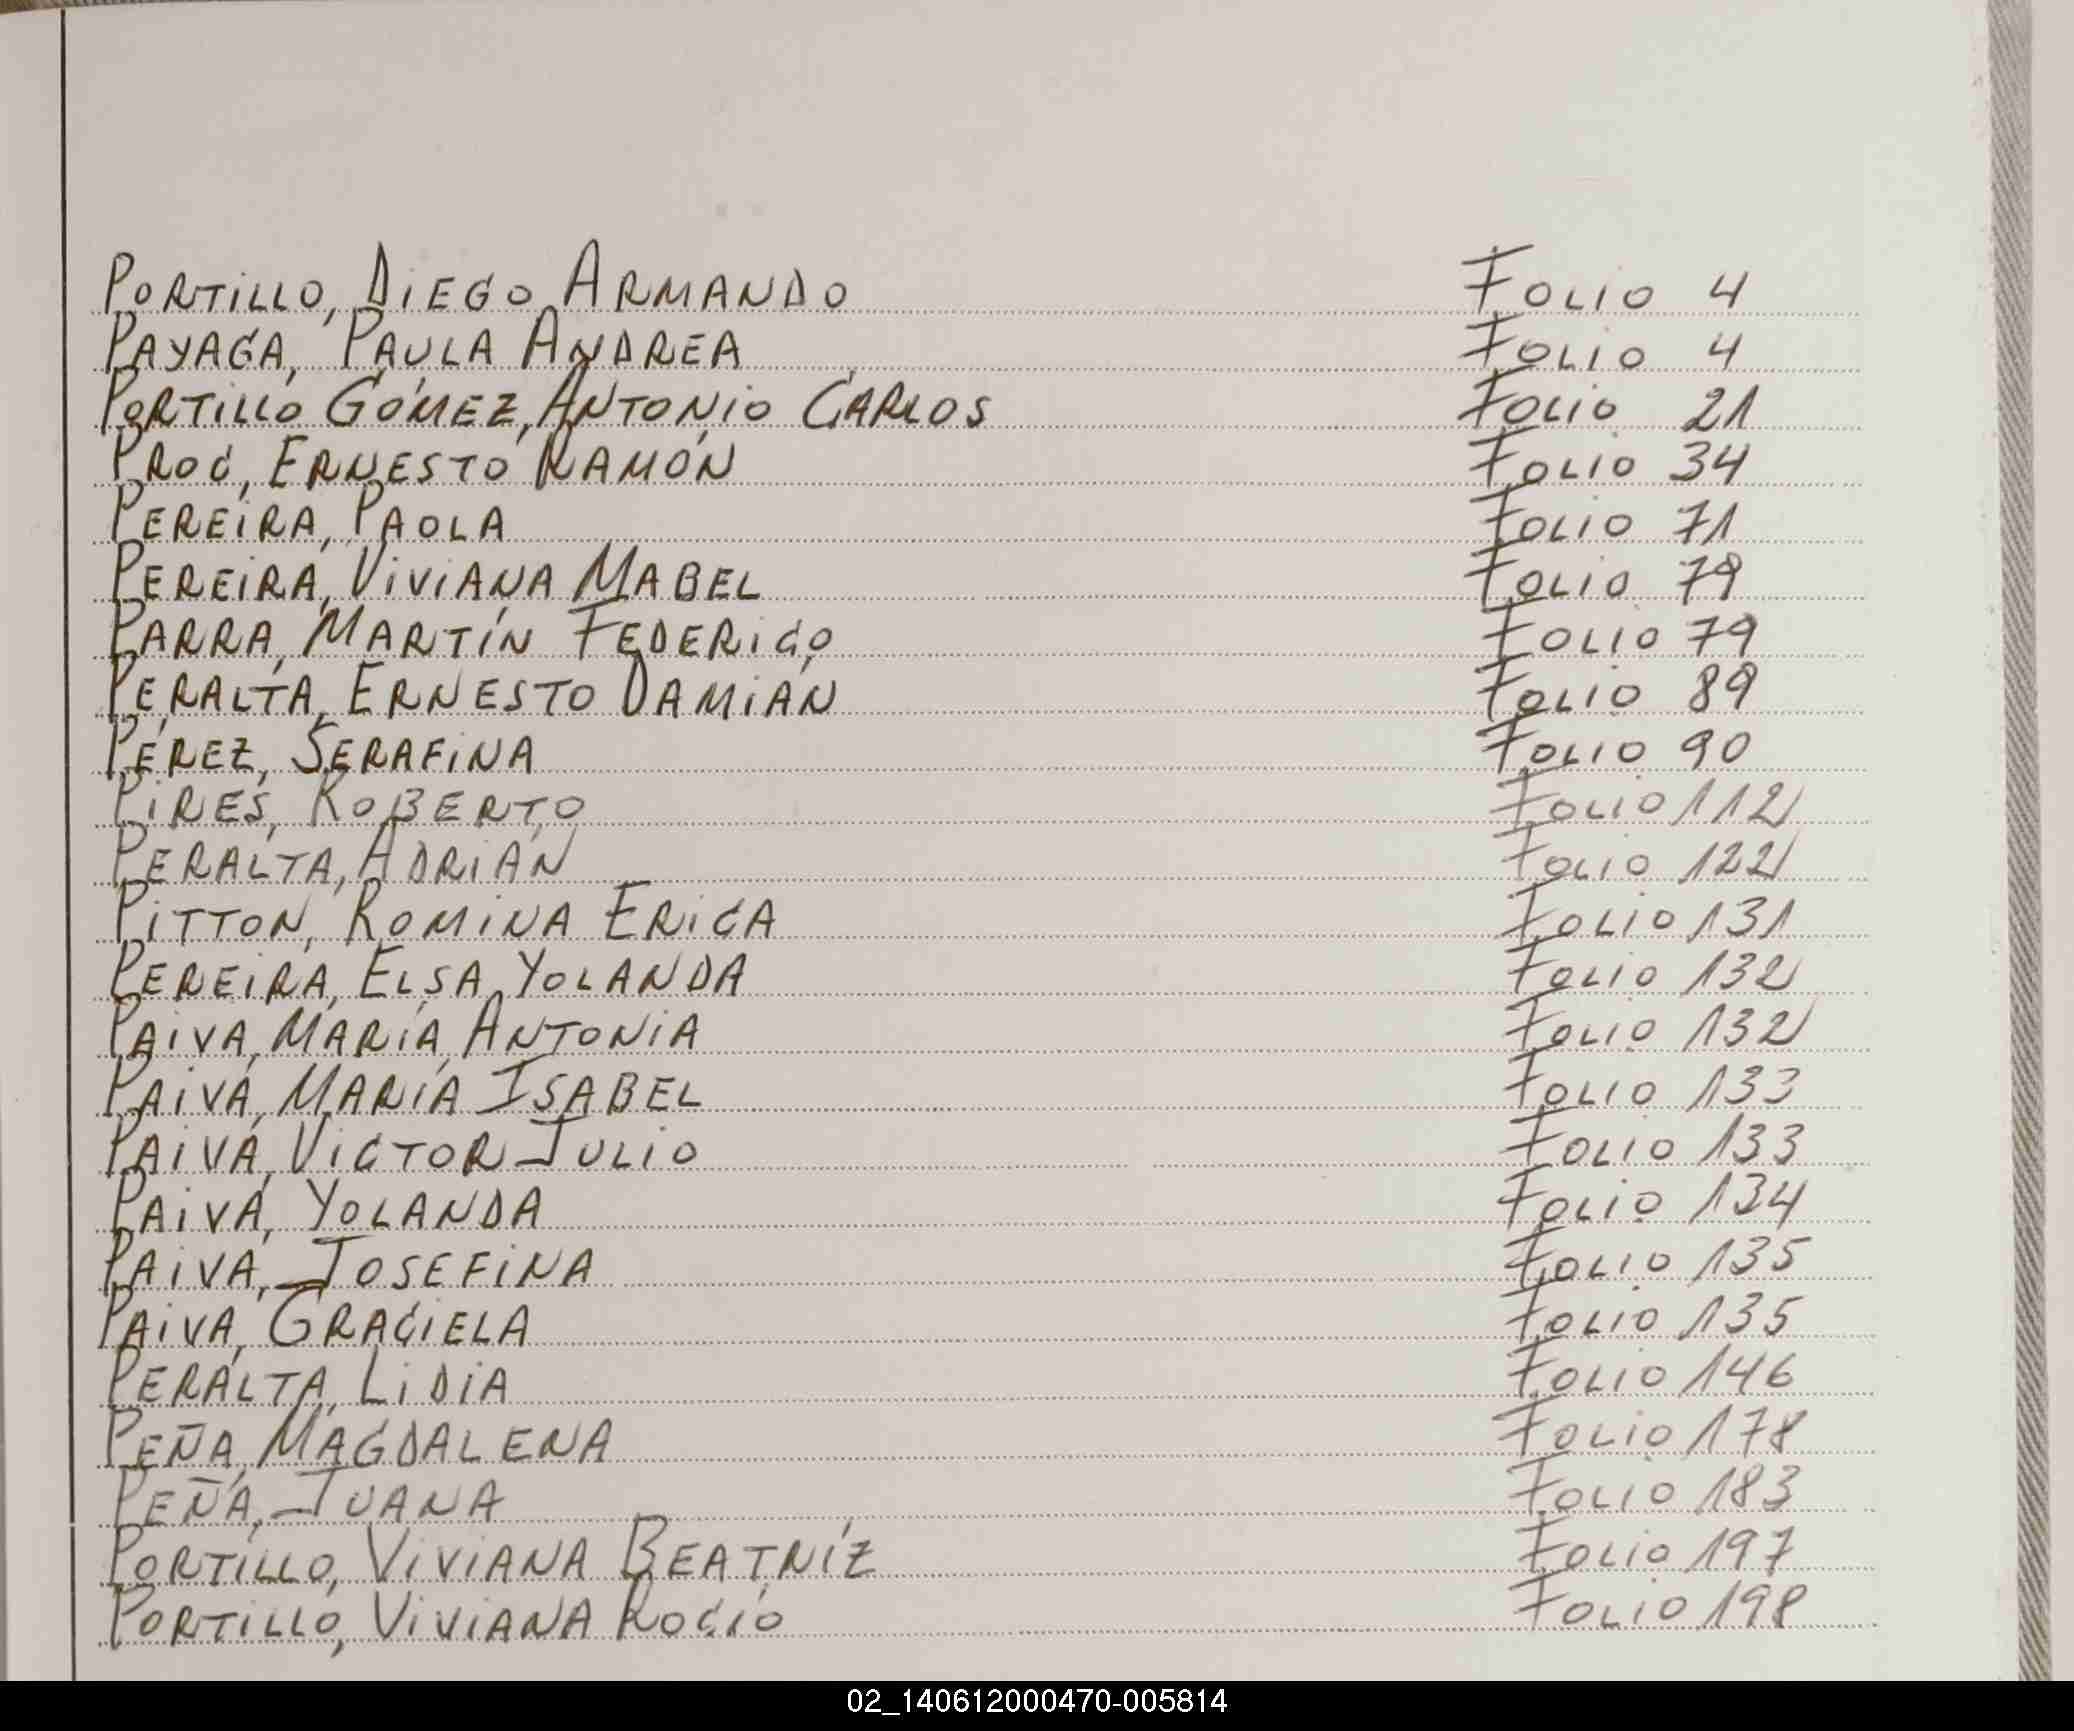 PORTILLO, DIEGO ARMANDO FOLIO 4
PAYAGA, PAULA ANDREA FOLIO 4
PORTILLO GÓMEZ, ANTONIO CARLOS FOLIO 21
PROC, ERNESTO RAMÓN FOLIO 34
PEREIRA, PAOLA FOLIO 71
PEREIRA, VIVIANA MABEL FOLIO 79
PARRA, MARTÍN FEDERICO FOLIO 79
PERALTA, ERNESTO DAMIÁN FOLIO 89
PÉREZ, SERAFINA FOLIO 90
PIRES, ROBERTO FOLIO 112
PERALTA, ADRIÁN FOLIO 122
PITTON, ROMINA ERICA FOLIO 131
PEREIRA, ELSA YOLANDA FOLIO 132
PAIVA, MARÍA ANTONIA FOLIO 132
PAIVA, MARÍA ISABEL FOLIO 133
PAIVA, VICTOR JULIO FOLIO 133
PAIVA, YOLANDA FOLIO 134
PAIVA, JOSEFINA FOLIO 135
PAIVA, GRACIELA FOLIO 135
PERALTA, LIDIA FOLIO 146
PEÑA, MAGDALENA FOLIO 178
PEÑA, JUANA FOLIO 183
PORTILLO, VIVIANA BEATRÍZ FOLIO 197
PORTILLO, VIVIANA ROCÍO FOLIO 198
02_140612000470-005814